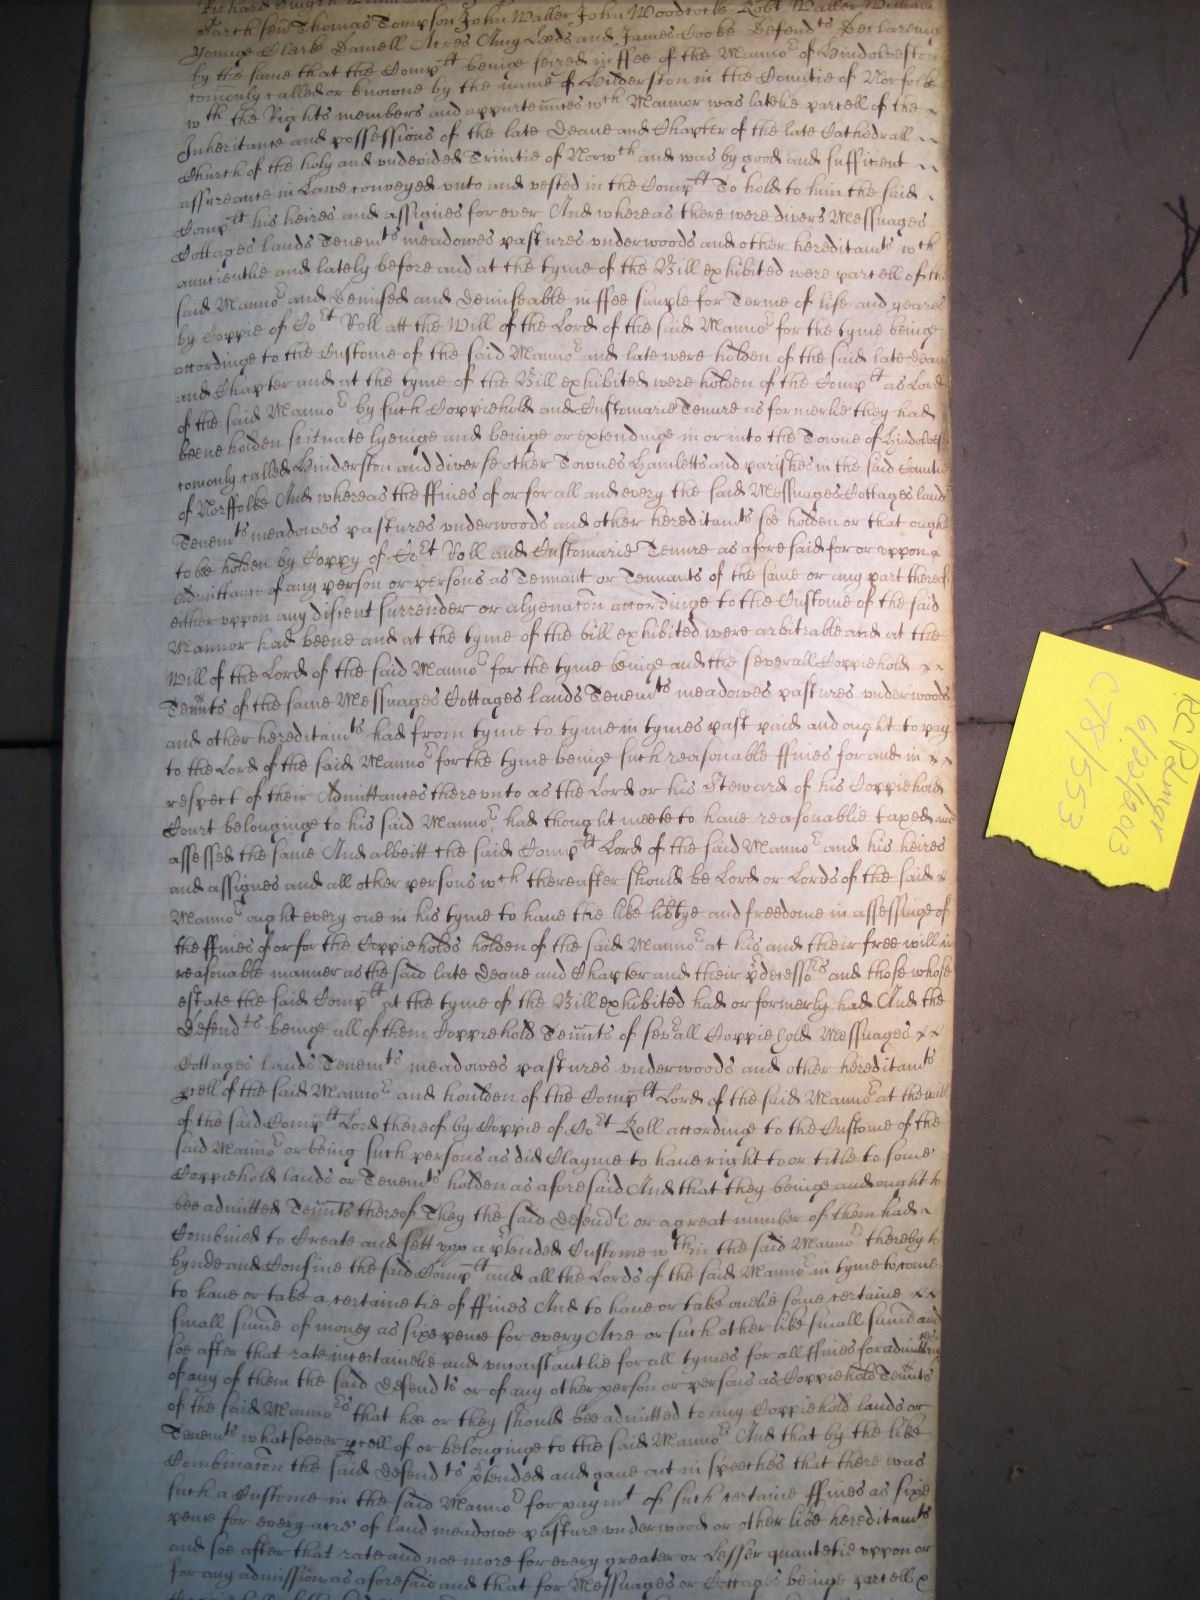 Thomas Tompson John Waller John Woodcocke Robt Waller William
Younge Clarke Daniell Acres Amy Leeds and James Cooke Defendts Declareinge
by the same that the Complt beinge seized in ffee of the Mannor of Hindolveston
comonly called or knowne by the name of Hilderston in the Countie of Norfolke
wth the Rights members and appurtennces wch Mannor was latelie parcell of the
Inheritance and possessions of the late Deane and Chapter of the late Cathedrall
Church of the holy and undevided Trinitie of Norwch and was by good and sufficient
assureance in Lawe conveyed unto and vested in the Complt To hold to him the said
Complt his heires and assignes for ever And whereas there were divers Messuages
Cottages lands Tenemts meadowes pastures underwoods and other hereditamts wch
auncientlie and lately before and at the tyme of the Bill exhibited were parcell of the
said Mannor and Demised and Demiseable in ffee simple for Terme of life and yeares
by Coppie of Cort Roll att the Will of the Lord of the said Mannor for the tyme beinge
accordinge to the Custome of the said Mannor and late were holden of the said late Deane
and Chapter and at the tyme of the Bill exhibited were holden of the Complt as Lord
of the said Mannor by such Coppiehold and Customarie Tenure as formerlie they had
beene holden scituate lyeinge and beinge or extendinge in or into the Towne of Hindolveston
comonly called Hinderston and diverse other Townes Hamletts and parishes in the said Countie
of Norffolke And whereas the ffines of or for all and every the said Messuages Cottages lands
Tenemts meadowes pastures underwoods and other hereditamts soe holden or that ought
to be holden by Coppy of Cort Roll and Customarie Tenure as aforesaid for or uppon
Admittance of any person or persons as Tennant or Tennants of the same or any part thereof
either uppon any discent surrender or alyenacon accordinge to the Custome of the said
Mannor had beene and at the tyme of the bill exhibited were arbitrable and at the
Will of the Lord of the said Mannor for the tyme beinge and the severall Coppiehold
Tennts of the same Messuages Cottages lands Tenemts meadowes pastures underwoods
and other hereditamts had from tyme to tyme in tymes past paid and ought to pay
to the Lord of the said Mannor for the tyme beinge such reasonable ffines for and in
respect of their Admittances thereunto as the Lord or his Steward of his Coppiehold
Court belonginge to his said Mannor had thought meete to have reasonablie taxed and
assessed the same And albeitt the said Complt Lord of the said Mannor and his heires
and assignes and all other persons wch thereafter should be Lord or Lords of the said
Mannor ought every one in his tyme to have the like libtye and freedome in assessinge of
the ffines of or for the Coppieholds holden of the said Mannor at his and their free will in
reasonable manner as the said late Deane and Chapter and their pdecessors and those whose
estate the said Complt at the tyme of the Bill exhibited had or formerly had And the
Defendts beinge all of them Coppiehold Tennts of sevall Coppiehold Messuages
Cottages lands Tenemts meadowes pastures underwoods and other hereditamts
pcell of the said Mannor and houlden of the Complt Lord of the said Mannor at the will
of the said Complt Lord thereof by Coppie of Cort Roll according to the Custome of the
said Mannor or being such persons as did Clayme to have right to or title to some
Coppiehold lands or Tenemts holden as aforesaid And that they beinge and ought to
bee admitted Tennts thereof They the said Defendts or a great number of them had
Combined to Create and sett upp a ptended Custome wthin the said Mannor thereby to
bynde and Confine the said Complt and all the Lords of the said Mannor in tyme to come
to have or take a certaintie of ffines And to have or take onelie some certaine
small summe of money as sixe pence for every Acre or such other like small summ and
soe after that rate incertainelie and unconstantlie for all tymes for all ffines for
of any of them the said Defendts or of any other person or persons as Coppiehold Tennts
of the said Mannors that hee or they should bee admitted to any Coppiehold lands or
Tenemts whatsoever pcell of or belonginge to the said Mannor And that by the like
Combinacon the said Defendts ptended and gave out in speeches that there was
such a Custome in the said Mannor for paymt of such certaine ffines as sixe
pence for every acre of land meadowe pasture underwood or other like hereditamts
and soe after that rate and noe more for every greater or Lesser quantetie uppon or
for any admission as aforesaid and that for Messuages or Cottages beinge parcell
RC Palmer
6/22/2013
C78/553